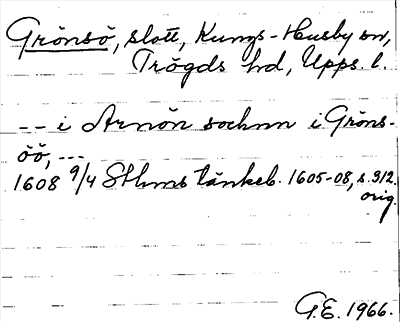 Grönsö, slott, Kungs-Husby sn,
Trögds hd, Upps. l.
-- i Arnön sochnn i Gröns-
öö, ---
1608 9/4 Sthms tänkeb. 1605-08, s. 312.
orig.
G.E. 1966.